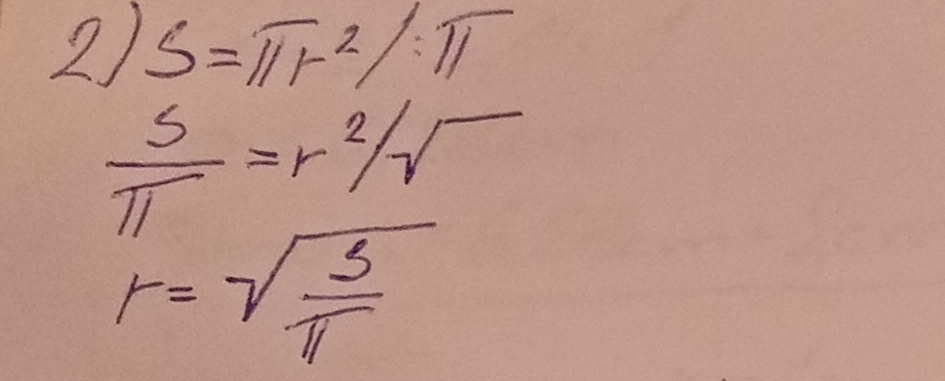 2) S=πr²/:π
S/π=r²/√
r=√(S/π)